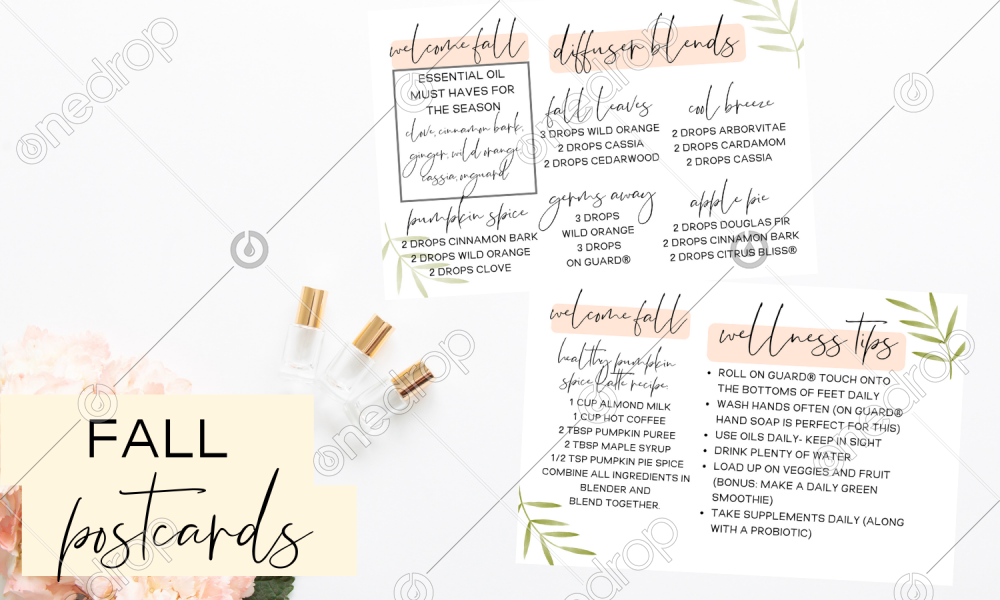 welcome fall
ESSENTIAL OIL
MUST HAVES FOR
THE SEASON
clove, cinnamon bark,
ginger, wild orange,
cassia, onguard
pumpkin spice
2 DROPS CINNAMON BARK
2 DROPS WILD ORANGE
2 DROPS CLOVE
diffuser blends
fall leaves
3 DROPS WILD ORANGE
2 DROPS CASSIA
2 DROPS CEDARWOOD
cool breeze
2 DROPS ARBORVITAE
2 DROPS CARDAMOM
2 DROPS CASSIA
germs away
3 DROPS
WILD ORANGE
3 DROPS
ON GUARD®
apple pie
2 DROPS DOUGLAS FIR
2 DROPS CINNAMON BARK
2 DROPS CITRUS BLISS®
welcome fall
healthy pumpkin
spice latte recipe:
1 CUP ALMOND MILK
1 CUP HOT COFFEE
2 TBSP PUMPKIN PUREE
2 TBSP MAPLE SYRUP
1/2 TSP PUMPKIN PIE SPICE
COMBINE ALL INGREDIENTS IN
BLENDER AND
BLEND TOGETHER.
wellness tips
• ROLL ON GUARD® TOUCH ONTO
THE BOTTOMS OF FEET DAILY
• WASH HANDS OFTEN (ON GUARD®
HAND SOAP IS PERFECT FOR THIS)
• USE OILS DAILY- KEEP IN SIGHT
• DRINK PLENTY OF WATER
• LOAD UP ON VEGGIES AND FRUIT
(BONUS: MAKE A DAILY GREEN
SMOOTHIE)
• TAKE SUPPLEMENTS DAILY (ALONG
WITH A PROBIOTIC)
FALL
postcards
onedrop
onedrop
onedrop
onedrop
onedrop
onedrop